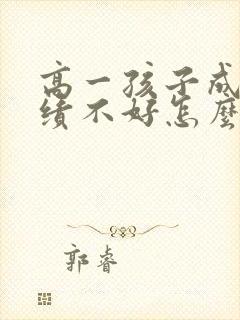 高一孩子成
绩不好怎麽
郭睿